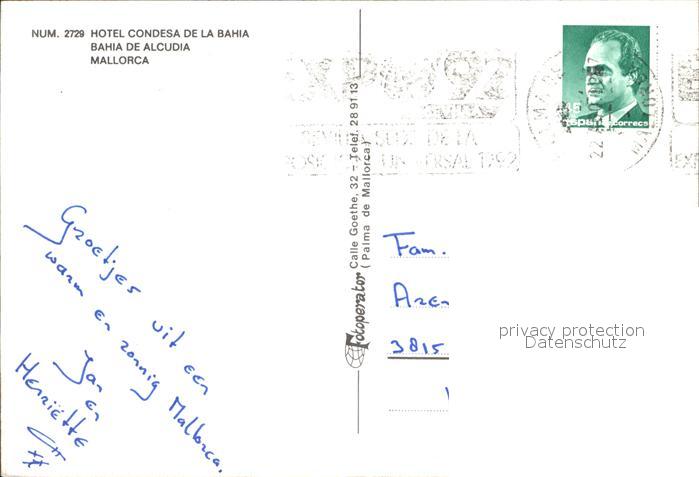 NUM. 2729 HOTEL CONDESA DE LA BAHIA
BAHIA DE ALCUDIA
MALLORCA
Groetjes uit een
warm en zonnig Mallorca.
Jan
en
Henriëtte
Fotoperator Calle Goethe, 32 - Telef. 28 91 13
(Palma de Mallorca)
EXPO 92
SEVILLA SEDE DE LA
UNIVERSAL 1992
España correos
22
Fam.
3815
privacy protection
Datenschutz